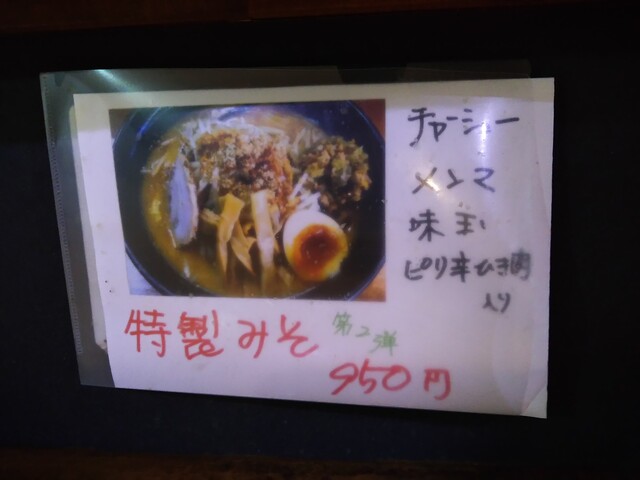 チャーシュー
メンマ
味玉
ピリ辛ひき肉
入り
特製みそ 第2弾
950円